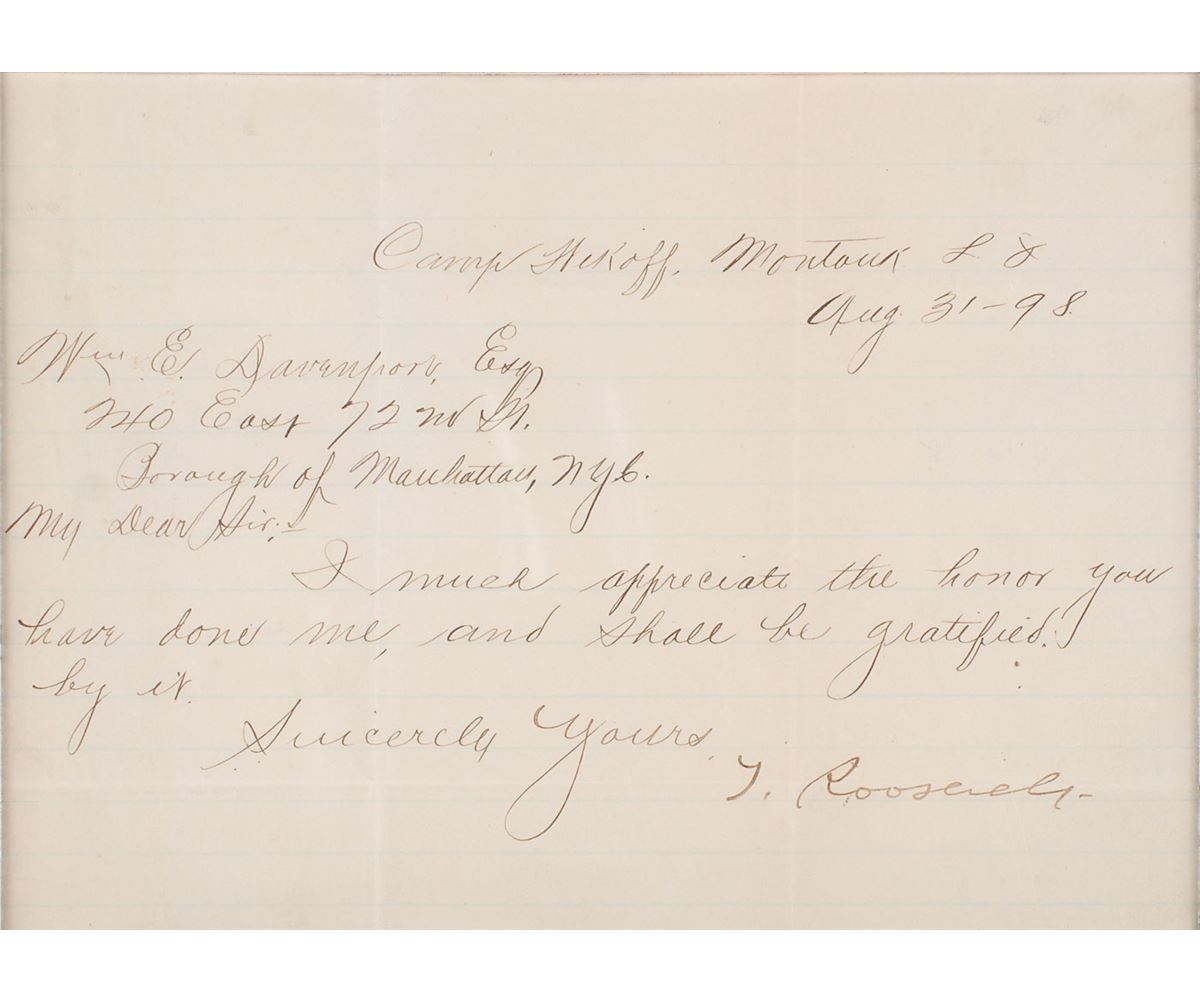 Camp Wikoff, Montauk L I
Aug. 31-98.
Wm E. Davenport, Esq
240 East 72nd St.
Borough of Manhattan, NYC.
My Dear Sir:-
I much appreciate the honor you
have done me, and shall be gratified.
by it.
Sincerely Yours,
T. Roosevelt-